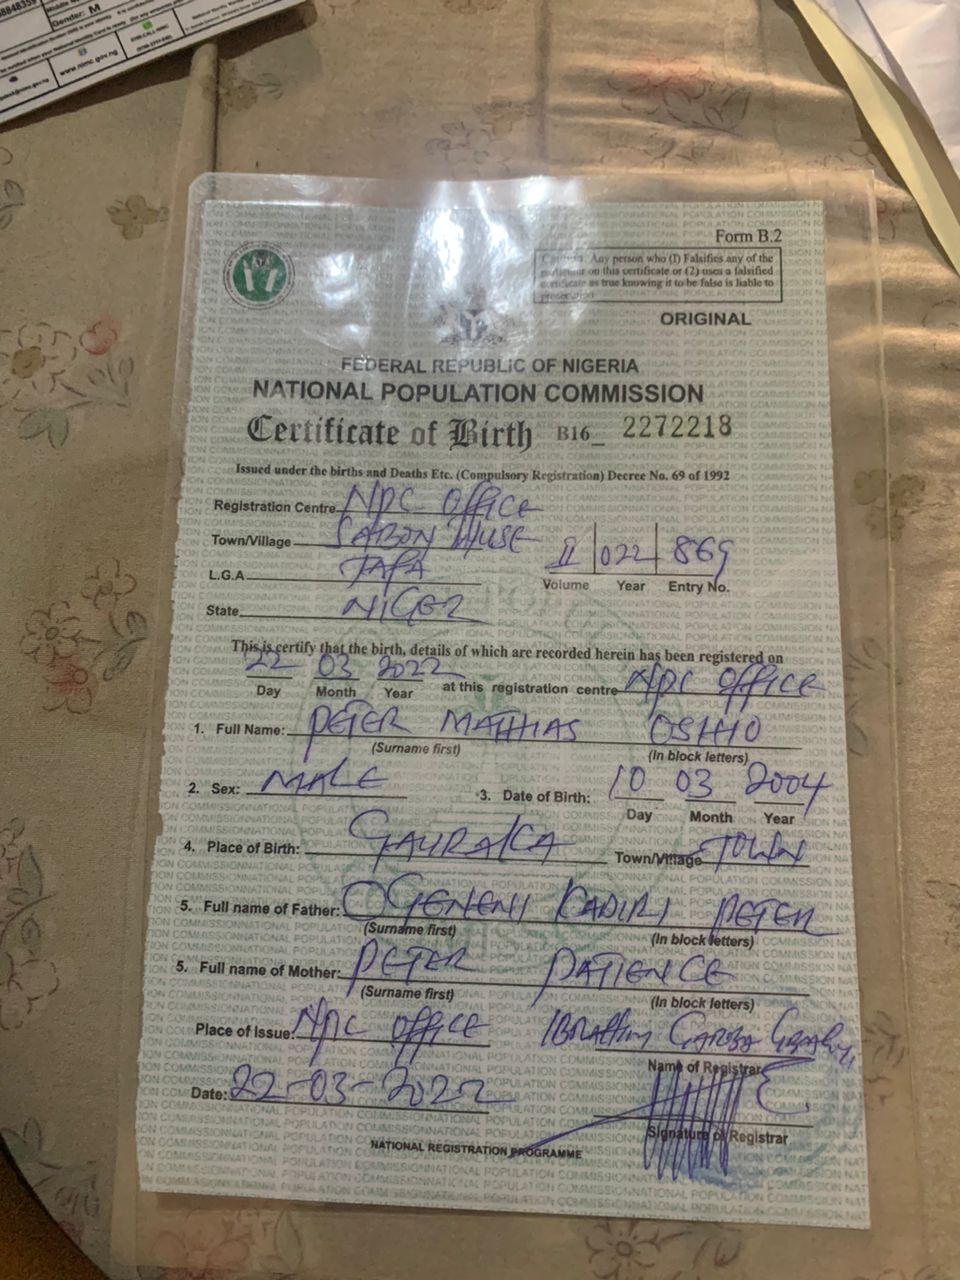 Gender: M
www.nimc.gov.ng
Form B.2
Caution: Any person who (I) Falsifies any of the
particular on this certificate or (2) uses a falsified
certificate as true knowing it to be false is liable to
prosecution
ORIGINAL
FEDERAL REPUBLIC OF NIGERIA
NATIONAL POPULATION COMMISSION
Certificate of Birth B16_ 2272218
Issued under the births and Deaths Etc. (Compulsory Registration) Decree No. 69 of 1992
Registration Centre NPC OFFICE
Town/Village SABON WUSE
II 022 869
L.G.A TAFA
Volume Year Entry No.
State NIGER
This is certify that the birth, details of which are recorded herein has been registered on
22 03 2022 at this registration centre NPC OFFICE
Day Month Year
1. Full Name: PETER MATTHIAS OSHIO
(Surname first) (In block letters)
2. Sex: MALE 3. Date of Birth: 10 03 2004
Day Month Year
4. Place of Birth: GAURAKA Town/Village TOWN
5. Full name of Father: OGENENI KADIRI PETER
(Surname first) (In block letters)
5. Full name of Mother: PETER PATIENCE
(Surname first) (In block letters)
Place of Issue: NPC OFFICE IBRAHIM GARBA
Name of Registrar
Date: 22-03-2022
Signature of Registrar
NATIONAL REGISTRATION PROGRAMME